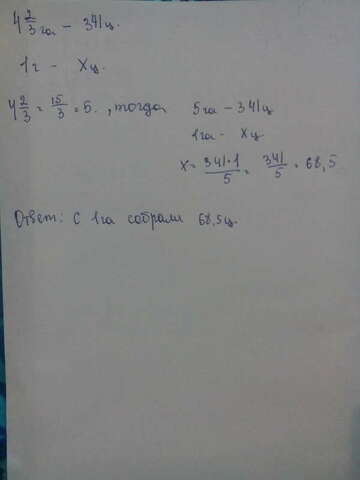 4 2/3 га - 341ц.
1г - Хц.
4 2/3 = 15/3 = 5. , тогда 5га - 341ц
1га - Хц.
Х = 341·1/5 = 341/5 = 68,5
Ответ: с 1га собрали 68,5ц.